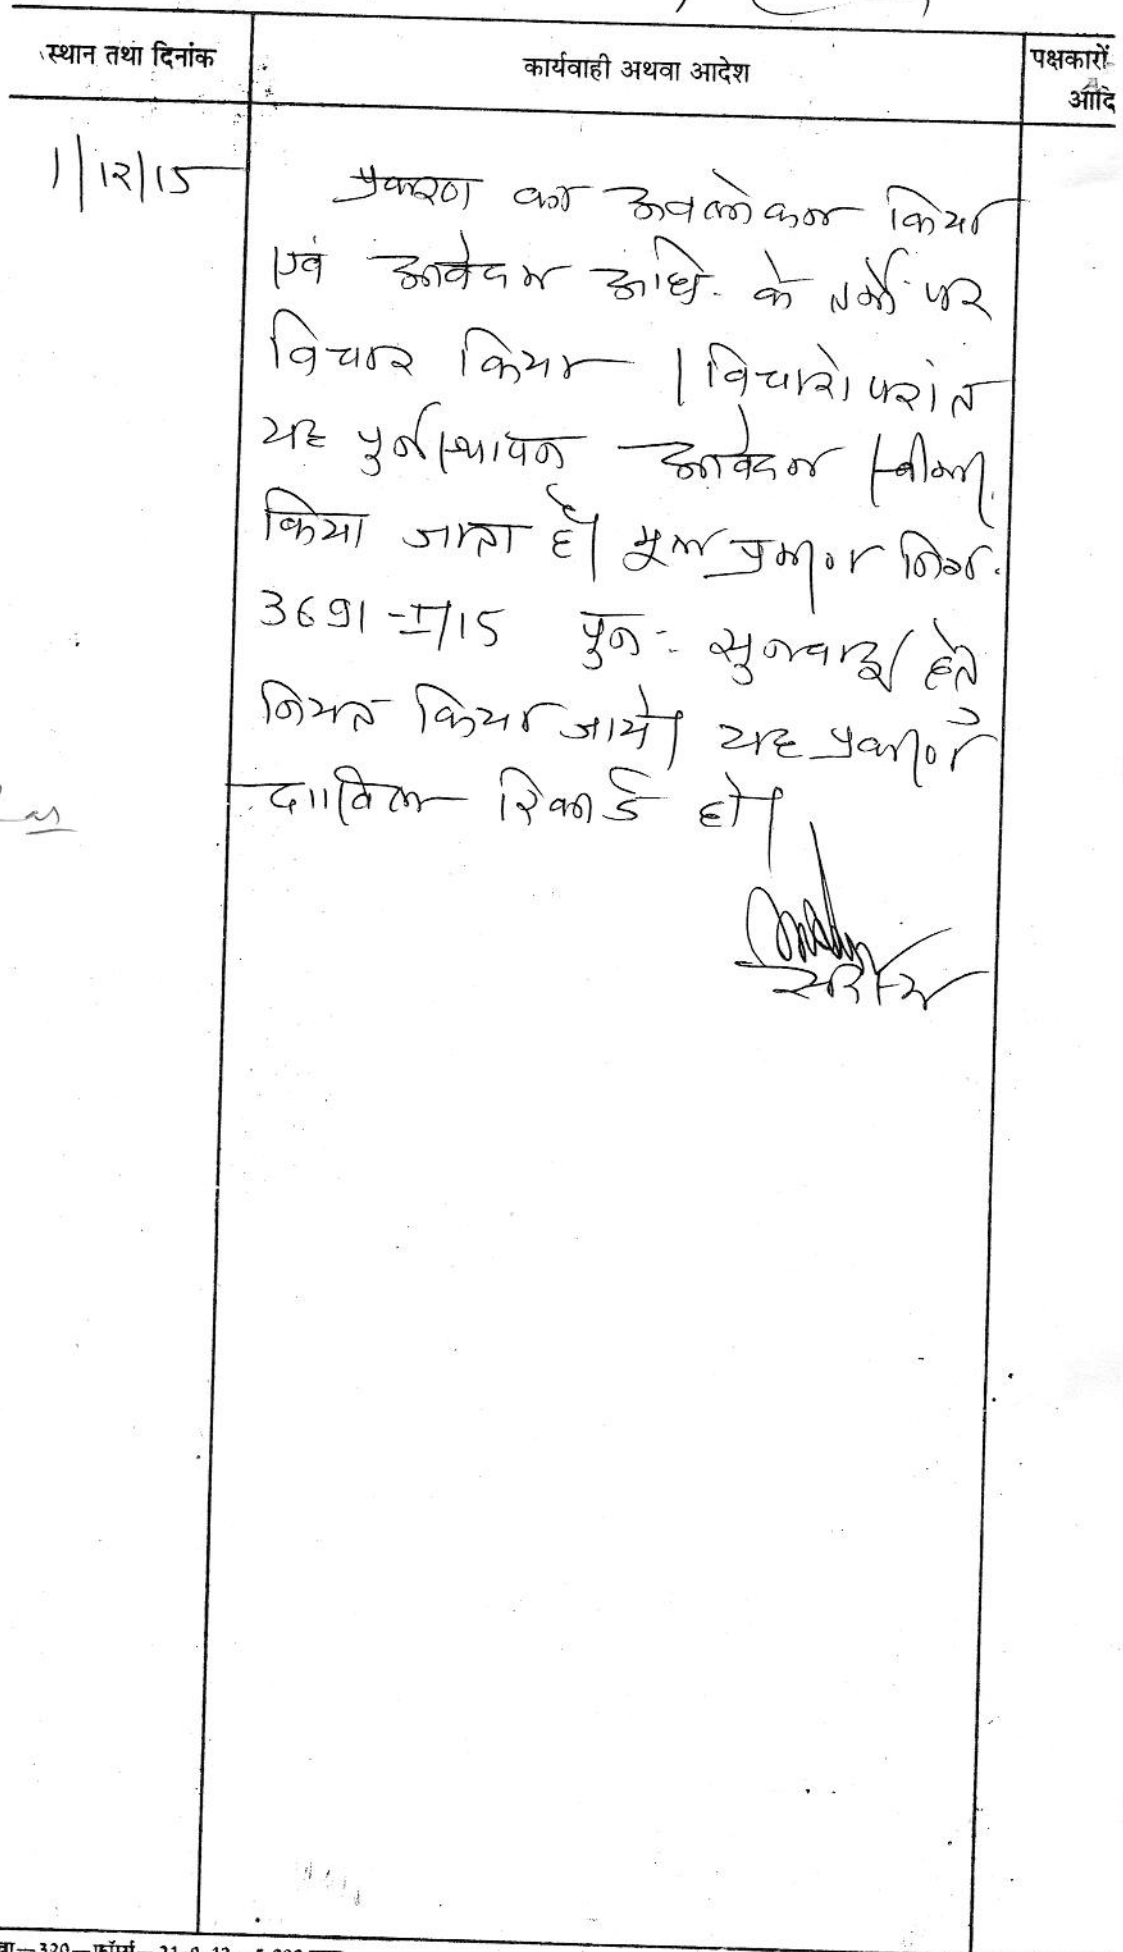 स्थान तथा दिनांक
कार्यवाही अथवा आदेश
पक्षकारों
आदि
1/12/15
प्रकरण का अवलोकन किया
एवं आवेदक अधि. के तर्को पर
विचार किया । विचारोपरांत
यह पुर्नस्थापन आवेदन स्वीका.
किया जाता है। मूल प्रकरण निग.
3691-I/15 पुनः सुनवाई हेतु
नियत किया जाये। यह प्रकरण
दाखिल रिकार्ड हो।
सदस्य